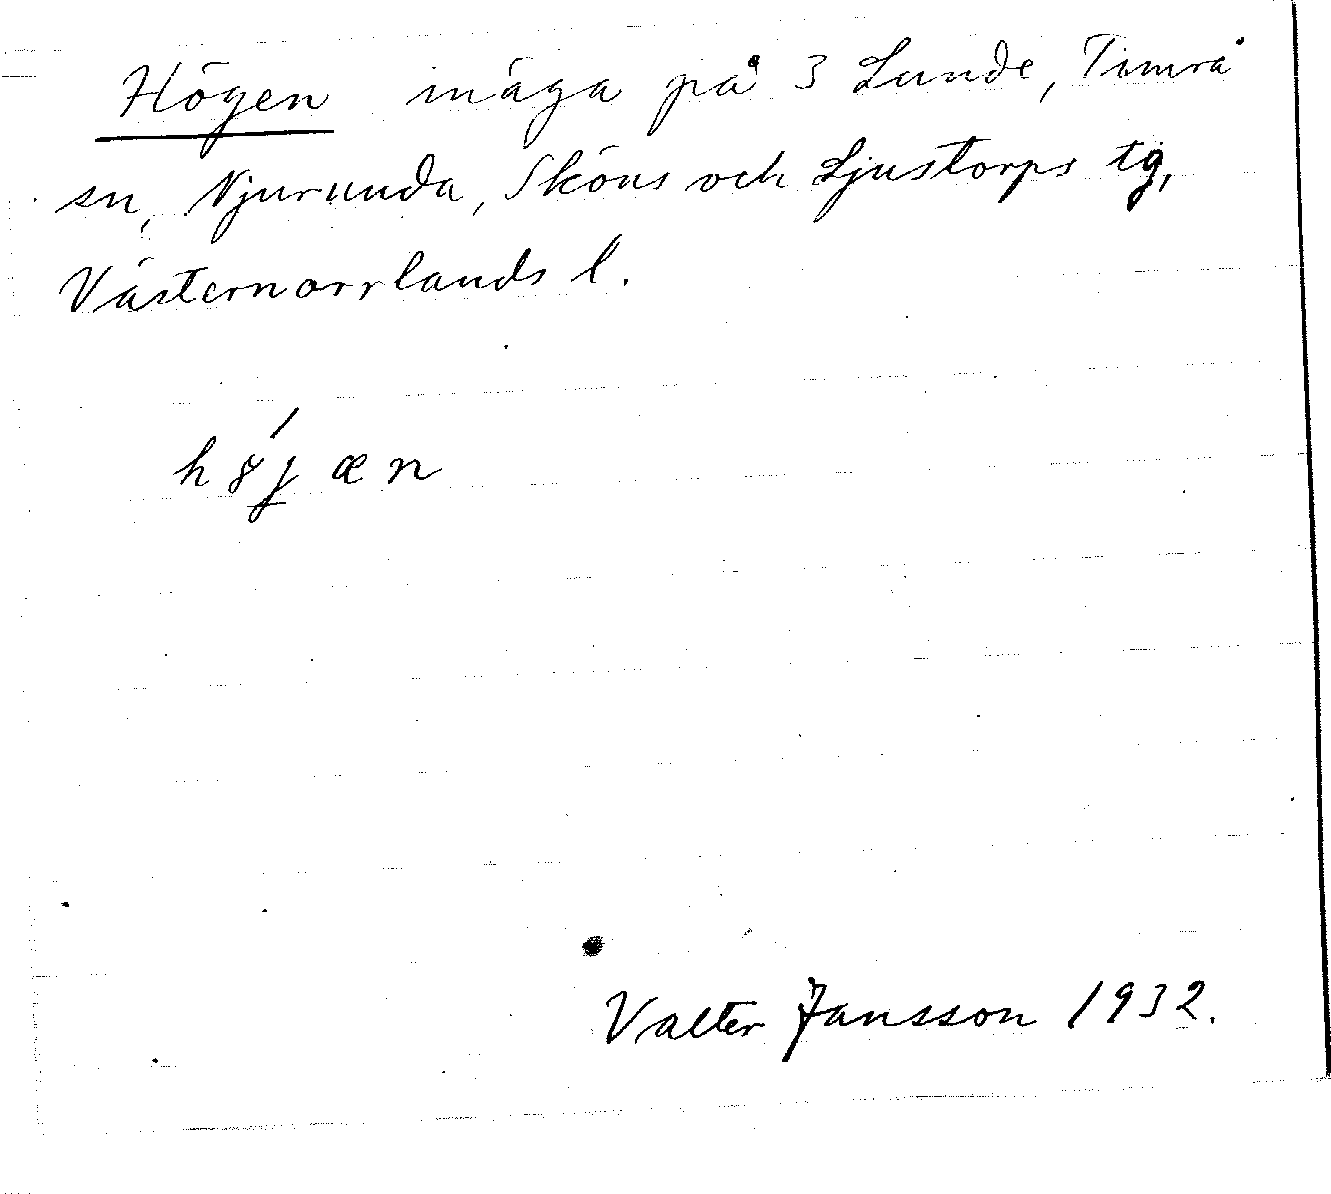 Högen inäga på 3 Lunde, Timrå
sn, Njurunda, Sköns och Ljustorps tg,
Västernorrlands l.
hȣ́jæn
Valter Jansson 1932.